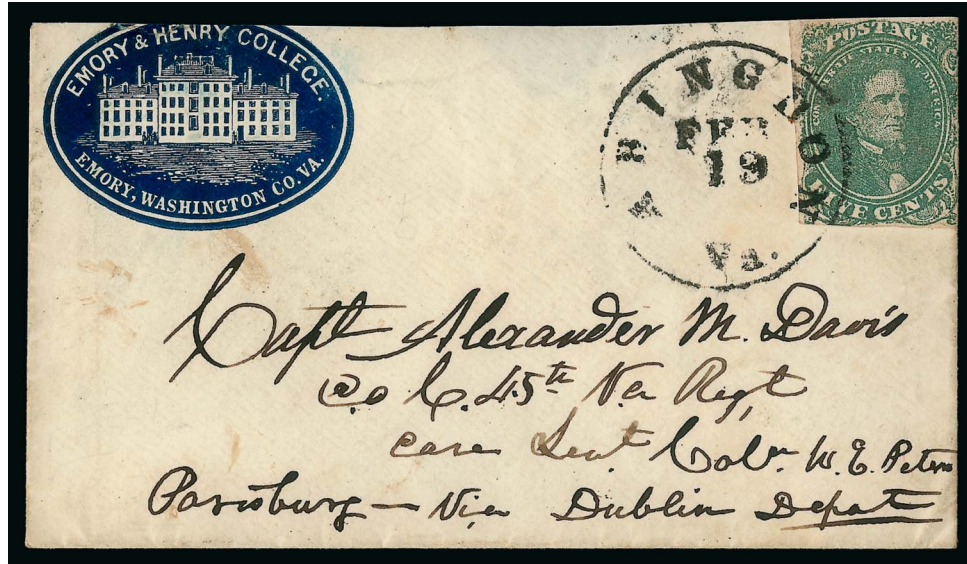 EMORY & HENRY COLLEGE.
EMORY, WASHINGTON CO. VA.
ABINGDON
FEB
19
VA.
POSTAGE
CONFEDERATE STATES OF AMERICA
FIVE CENTS
Capt Alexander M. Davis
Co C. 45th Va Regt
care Leut Coln. W. E. Peters
Parisburg — Via Dublin Depot